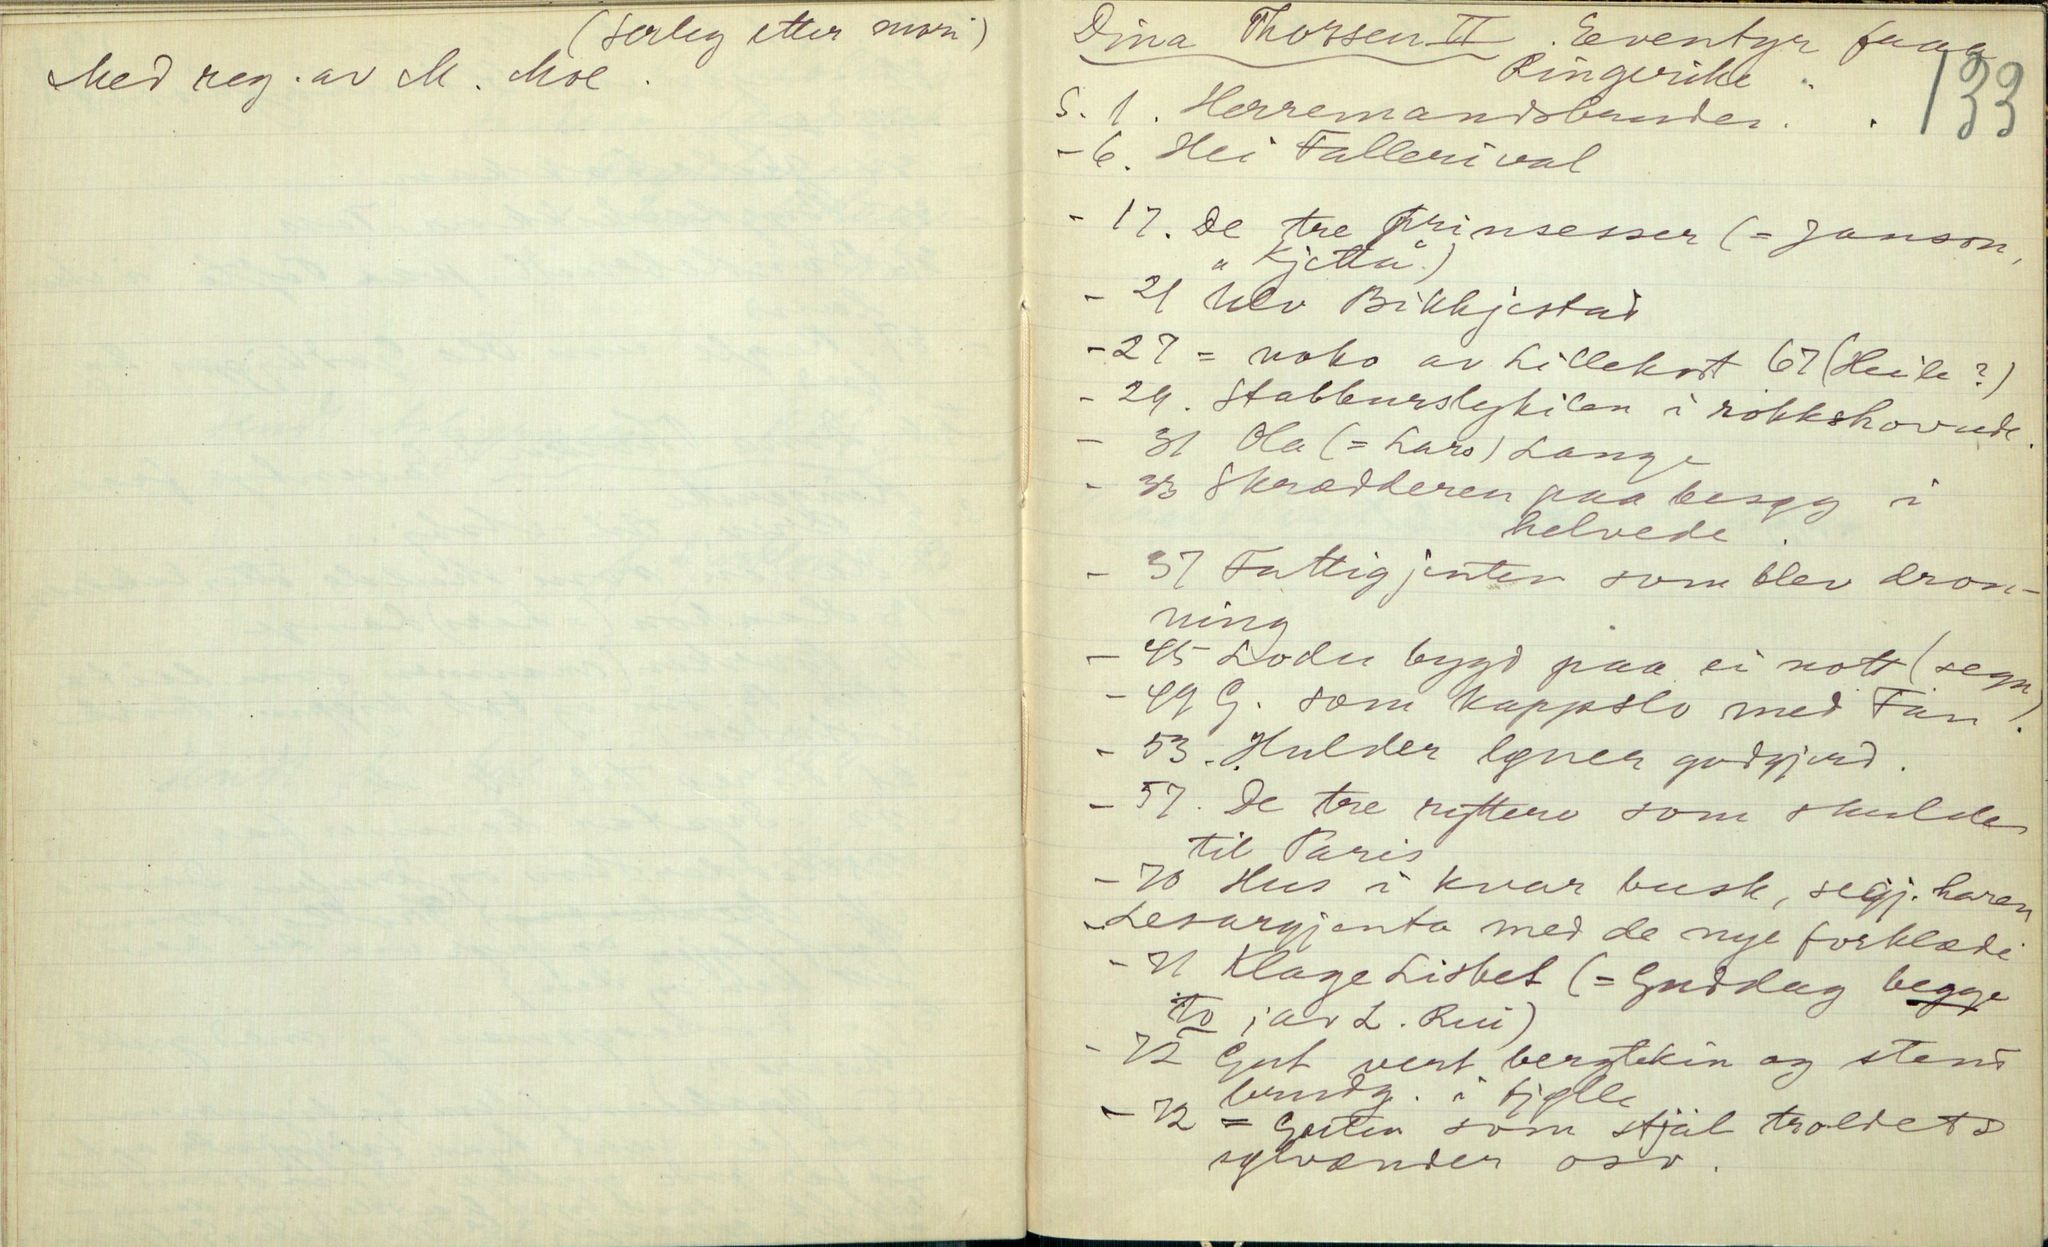 (særleg etter mori)
Med reg. av M. Moe.
Dina Thorsen II. Eventyr fraa
Ringerike.
133
S. 1. Herremandsbruden.
- 6. Hei Fallerival
- 17. De tre prinsesser (= Janson,
"Kjetta")
- 21 Ulv Bikkjestad
- 27 = noko av Lillekort 67 (Heile?)
- 29. Stabburslykilen i rokkshovude.
- 31 Ola (= Lars) Lange
- 33 Skrædderen paa besøg i
helvede.
- 37 Fattigjenten som blev dron-
ning
- 45 bygd paa ei nott (segn)
- 49 G. som kappslo med Fan.
- 53. Hulder løner godgjerd.
- 57. De tre røftere som skulde
til Paris
- 70 Hus i kvar busk, segj. haren
- med de nye forklædi
- 71 Klage Lisbet (= Guddag begge
to, av L. Rui)
- 72 Gut vert bergtekin og stend
brudg. i fjølle
- 72 = Guten som stjal troldets
sølvænder osv.